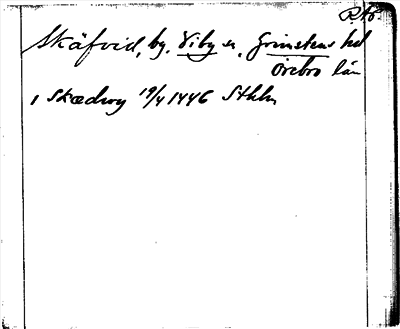 RAp.
Skäfvid, by, Viby sn, Grimstens hd
Örebro län
i Skædwy 19/4 1446 Sthlm